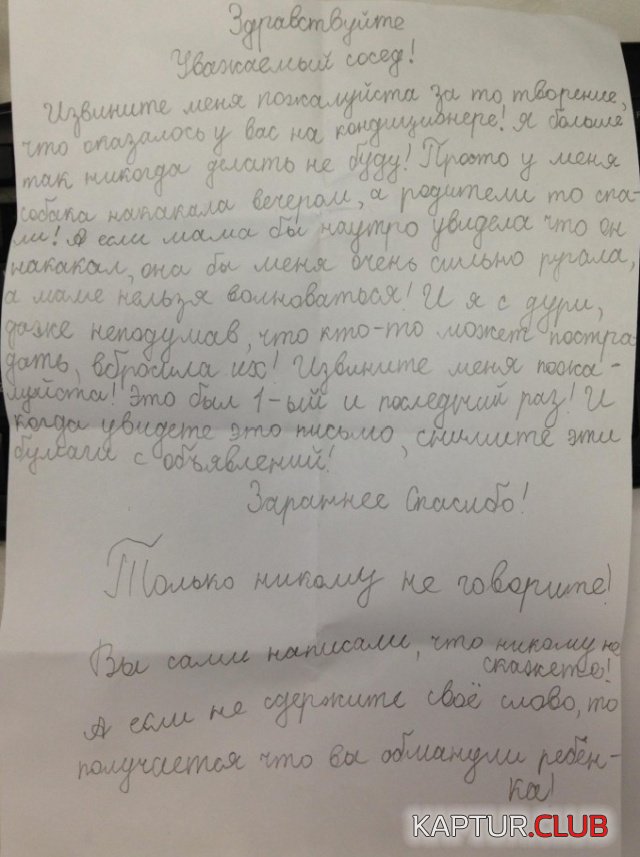 Здравствуйте
Уважаемый сосед!
Извините меня пожалуйста за то, творение,
что оказалось у вас на кондиционере! Я больше
так никогда делать не буду! Просто у меня
собака накакала вечером, а родители то спа-
ли! А если мама бы наутро увидела что он
накакал, она бы меня очень сильно ругала,
а маме нельзя волноваться! И я с дури,
даже неподумав, что кто-то может постра-
дать, вбросила их! Извините меня пожа-
луйста! Это был 1-ый и последний раз! И
когда увидете это письмо, снимите эти
бумаги с объявлений!
Заратнее Спасибо!
Только никому не говорите!
Вы сами написали, что никому не
скажете!
А если не сдержите своё слово, то
получается что вы обманули ребён-
ка!
KAPTUR.CLUB